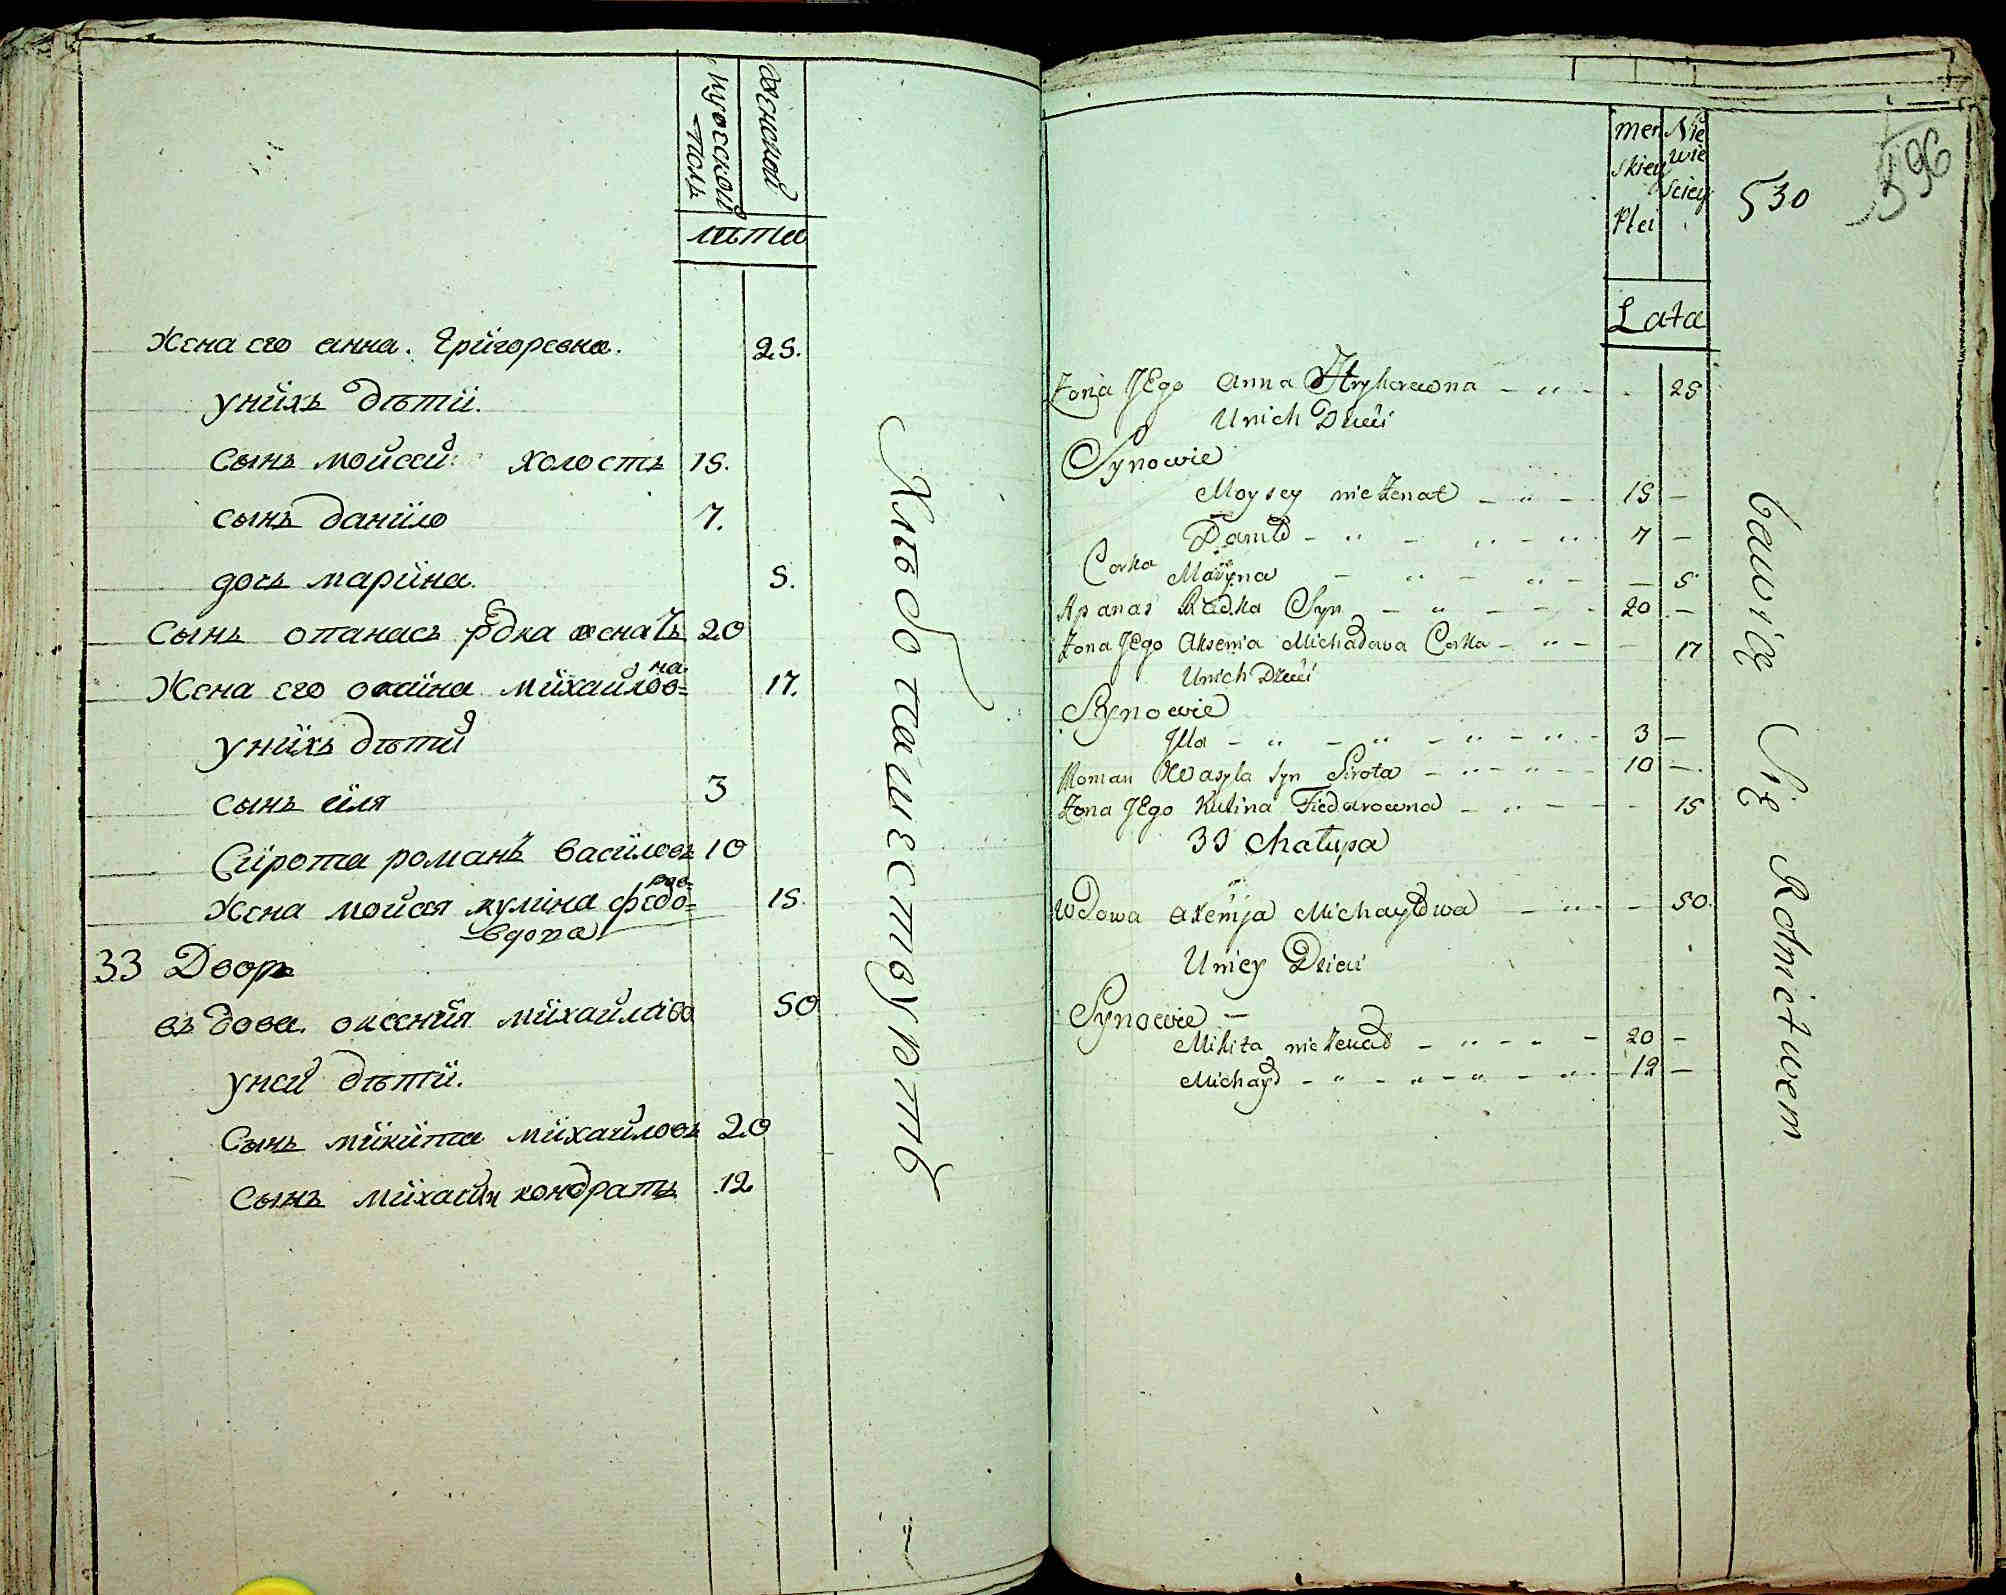 мужской
полъ
женской
лѣта
Жена его анна. Григоревна. 25.
унихъ дѣти.
сынъ мойсей холостъ 15.
сынъ данило 7.
дочь марина. 5.
Сынъ опанасъ рдка женатъ 20
Жена его оксина михайлов=на 17.
унихъ дѣти
сынъ иля 3
Сирота романъ василовъ 10
Жена мойсея кулина федо=ров= 15.
вдова
33 Дворъ
въдова. оксения михайлава 50
уней дѣти.
Сынъ микита михайловъ 20
Сынъ михайла кондратъ 12
Хлѣбопашествуютъ
Men Nie
skiey wie
Plci sciey
Lata
530
596
Żona JEgo Anna Hryhorewna 25
Unich Dzieci
Synowie
Moysey nieżenat 15
Daniło 7
Corka Maryna 5
Apanas Radka Syn 20
Żona JEgo Aksenia Michałowa Corka 17
Unich Dzieci
Synowie
Jlla 3
Roman Wasyla Syn Sirota 10
Żona JEgo Kulina Fiedarowna 15
33 Chałupa
Wdowa Axenija Michayłowa 50.
Uniey Dzieci
Synowie
Mikita nieżenat 20
Michayło 12
bawią Się Rolnictwem